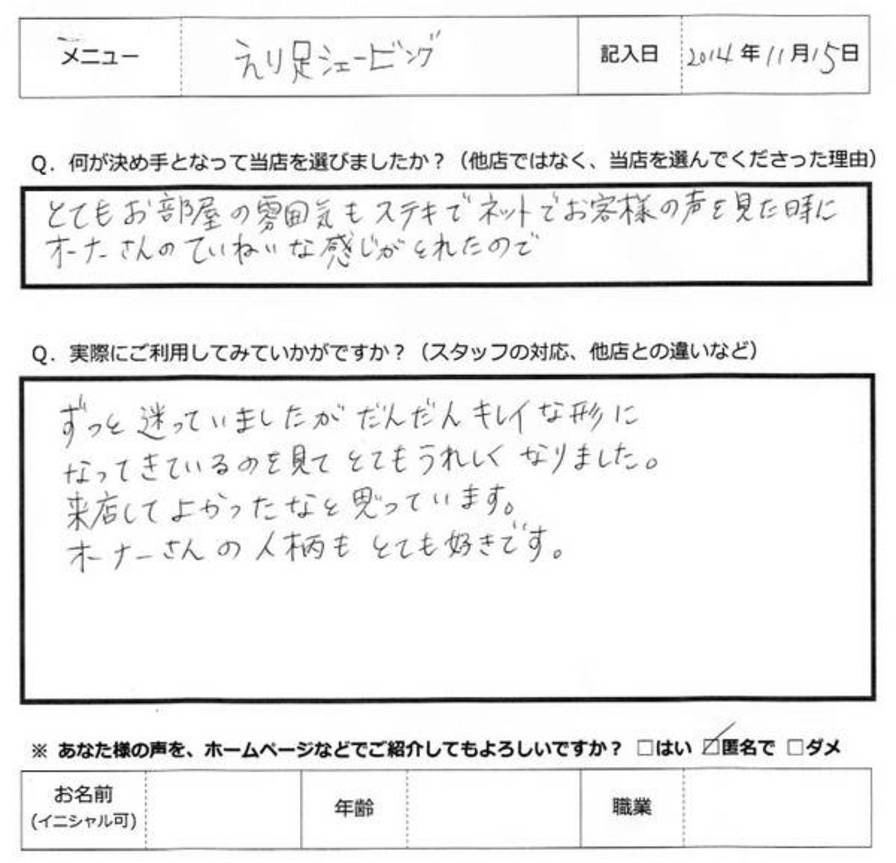 メニュー えり足シェービング 記入日 2014年11月15日
Q．何が決め手となって当店を選びましたか？（他店ではなく、当店を選んでくださった理由）
とてもお部屋の雰囲気もステキでネットでお客様の声を見た時に
オーナーさんのていねいな感じがとれたので
Q．実際にご利用してみていかがですか？（スタッフの対応、他店との違いなど）
ずっと迷っていましたがだんだんキレイな形に
なってきているのを見てとてもうれしくなりました。
来店してよかったなと思っています。
オーナーさんの人柄もとても好きです。
※ あなた様の声を、ホームページなどでご紹介してもよろしいですか？ □はい ☑匿名で □ダメ
お名前 年齢 職業
(イニシャル可)